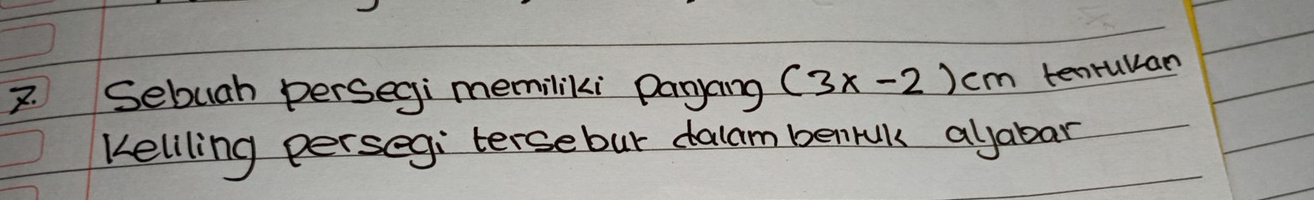 7. Sebuah persegi memiliki Panjang (3x - 2) cm tentukan
Keliling persegi tersebut dalam bentuk aljabar